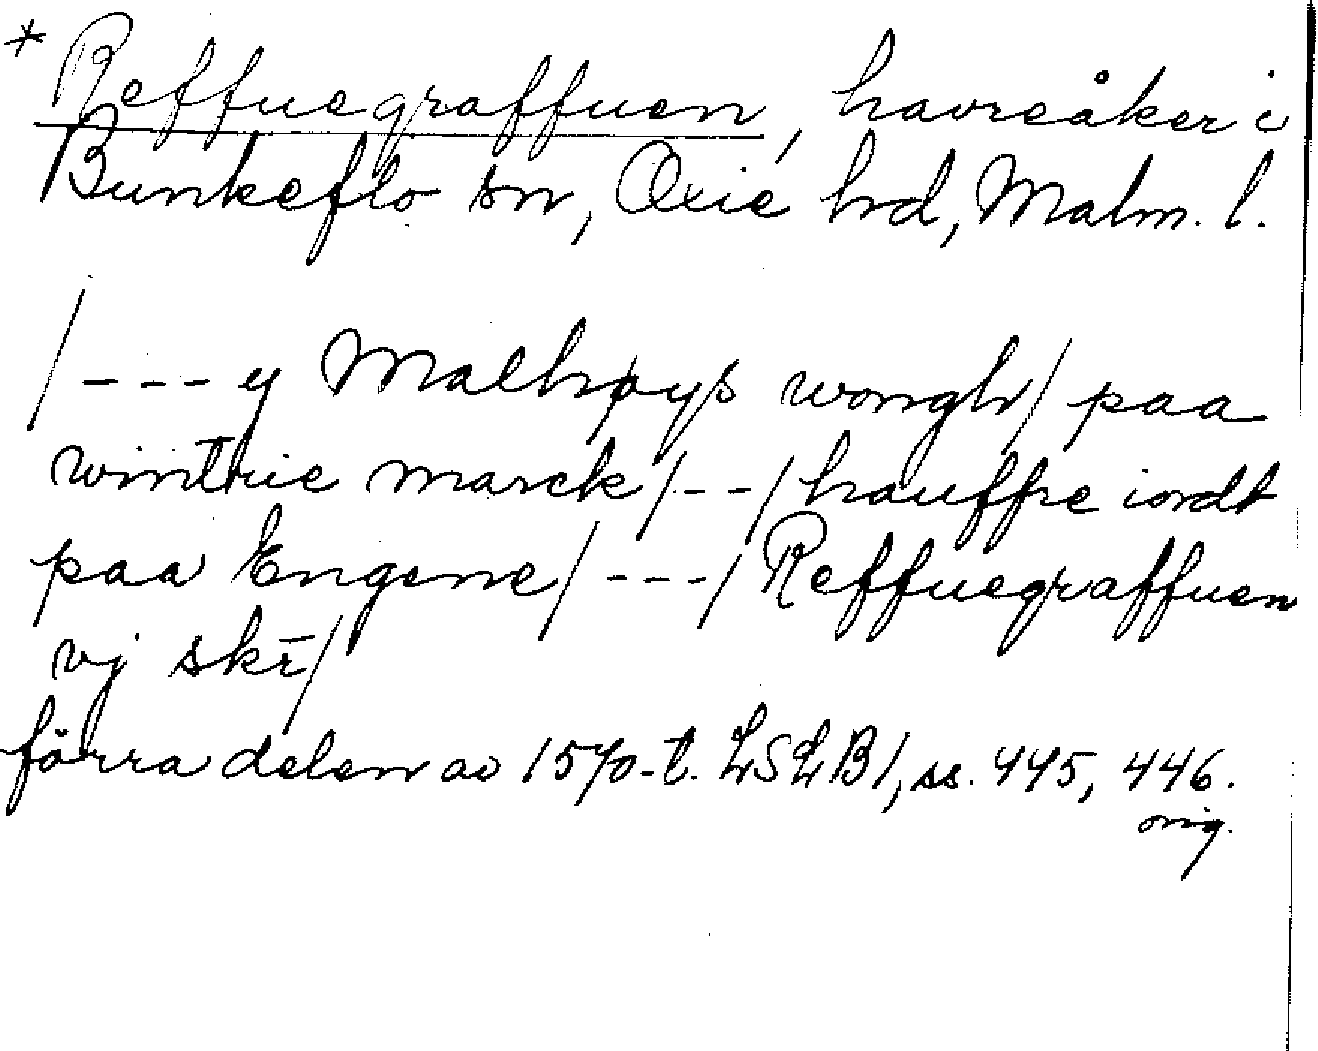 * Reffuegraffuen, havreåker i
Bunkeflo sn, Oxie hrd, Malm. l.
/--- y Malhøys wongh/ paa
wintrie marck/--/hauffre iordt
paa Engene/---/Reffuegraffuen
vj skr̄/
förra delen av 1570-t. LSLB1, ss. 445, 446.
orig.